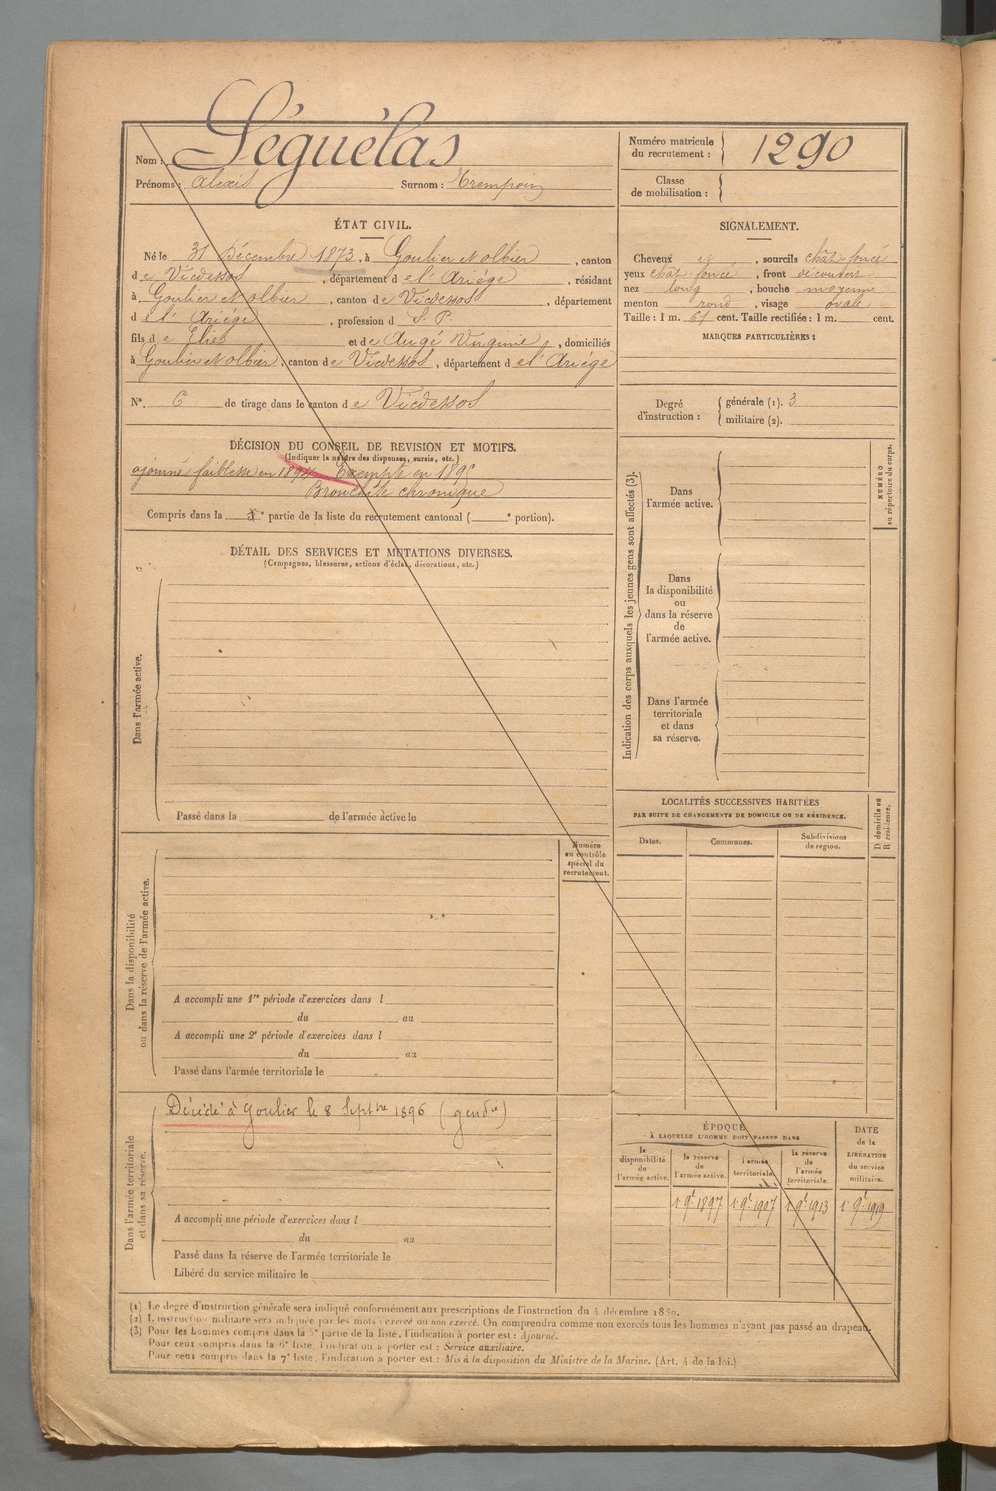 Nom : Séguélas
Prénoms : Alexis Surnom : Trempoin
Numéro matricule du recrutement : 1290
Classe de mobilisation :
ÉTAT CIVIL.
Né le 31 Décembre 1873, à Goulier et olbier, canton
de Vicdessos, département de l'Ariége, résidant
à Goulier et olbier, canton de Vicdessos, département
de l'Ariége, profession d S. P.
fils de Elie et de Augé Virginie, domiciliés
à Goulier et olbier, canton de Vicdessos, département de l'Ariége
N°. 6 de tirage dans le canton de Vicdessos
SIGNALEMENT.
Cheveux et, sourcils chât. foncé
yeux chât. foncé, front découvert
nez long, bouche moyenne
menton rond, visage ovale
Taille : 1 m. 61 cent. Taille rectifiée : 1 m. cent.
MARQUES PARTICULIÈRES :
Degré d'instruction : générale (1). 3
militaire (2).
DÉCISION DU CONSEIL DE REVISION ET MOTIFS.
(Indiquer la nature des dispenses, sursis, etc.)
ajourné faiblesse en 1894 Exempt en 1895
Bronchite chronique
Compris dans la e partie de la liste du recrutement cantonal ( e portion).
DÉTAIL DES SERVICES ET MUTATIONS DIVERSES.
(Campagnes, blessures, actions d'éclat, décorations, etc.)
Dans l'armée active.
Passé dans la de l'armée active le
Indication des corps auxquels les jeunes gens sont affectés (3).
Dans l'armée active.
Dans la disponibilité ou dans la réserve de l'armée active.
Dans l'armée territoriale et dans sa réserve.
NUMÉRO au répertoire du corps.
LOCALITÉS SUCCESSIVES HABITÉES
PAR SUITE DE CHANGEMENTS DE DOMICILE OU DE RÉSIDENCE.
Dates. Communes. Subdivisions de région. D domicile ou R résidence.
Numéro au contrôle spécial du recrutement.
Dans la disponibilité ou dans la réserve de l'armée active.
A accompli une 1re période d'exercices dans l
du au
A accompli une 2e période d'exercices dans l
du au
Passé dans l'armée territoriale le
Dans l'armée territoriale et dans sa réserve.
Décédé à Goulier le 8 Septbre 1896 (gendie)
A accompli une période d'exercices dans l
du au
Passé dans la réserve de l'armée territoriale le
Libéré du service militaire le
ÉPOQUE
À LAQUELLE L'HOMME DOIT PASSER DANS
la disponibilité de l'armée active. la réserve de l'armée active. l'armée territoriale. la réserve de l'armée territoriale.
DATE de la LIBÉRATION du service militaire.
1 9e 1897 1 9e 1907 1 9e 1913 1 9e 1919
(1) Le degré d'instruction générale sera indiqué conformément aux prescriptions de l'instruction du 4 décembre 1889.
(2) L'instruction militaire sera indiquée par les mots : exercé ou non exercé. On comprendra comme non exercés tous les hommes n'ayant pas passé au drapeau.
(3) Pour les hommes compris dans la 5e partie de la liste, l'indication à porter est : Ajourné.
Pour ceux compris dans la 6e liste, l'indication à porter est : Service auxiliaire.
Pour ceux compris dans la 7e liste, l'indication à porter est : Mis à la disposition du Ministre de la Marine. (Art. 4 de la loi.)